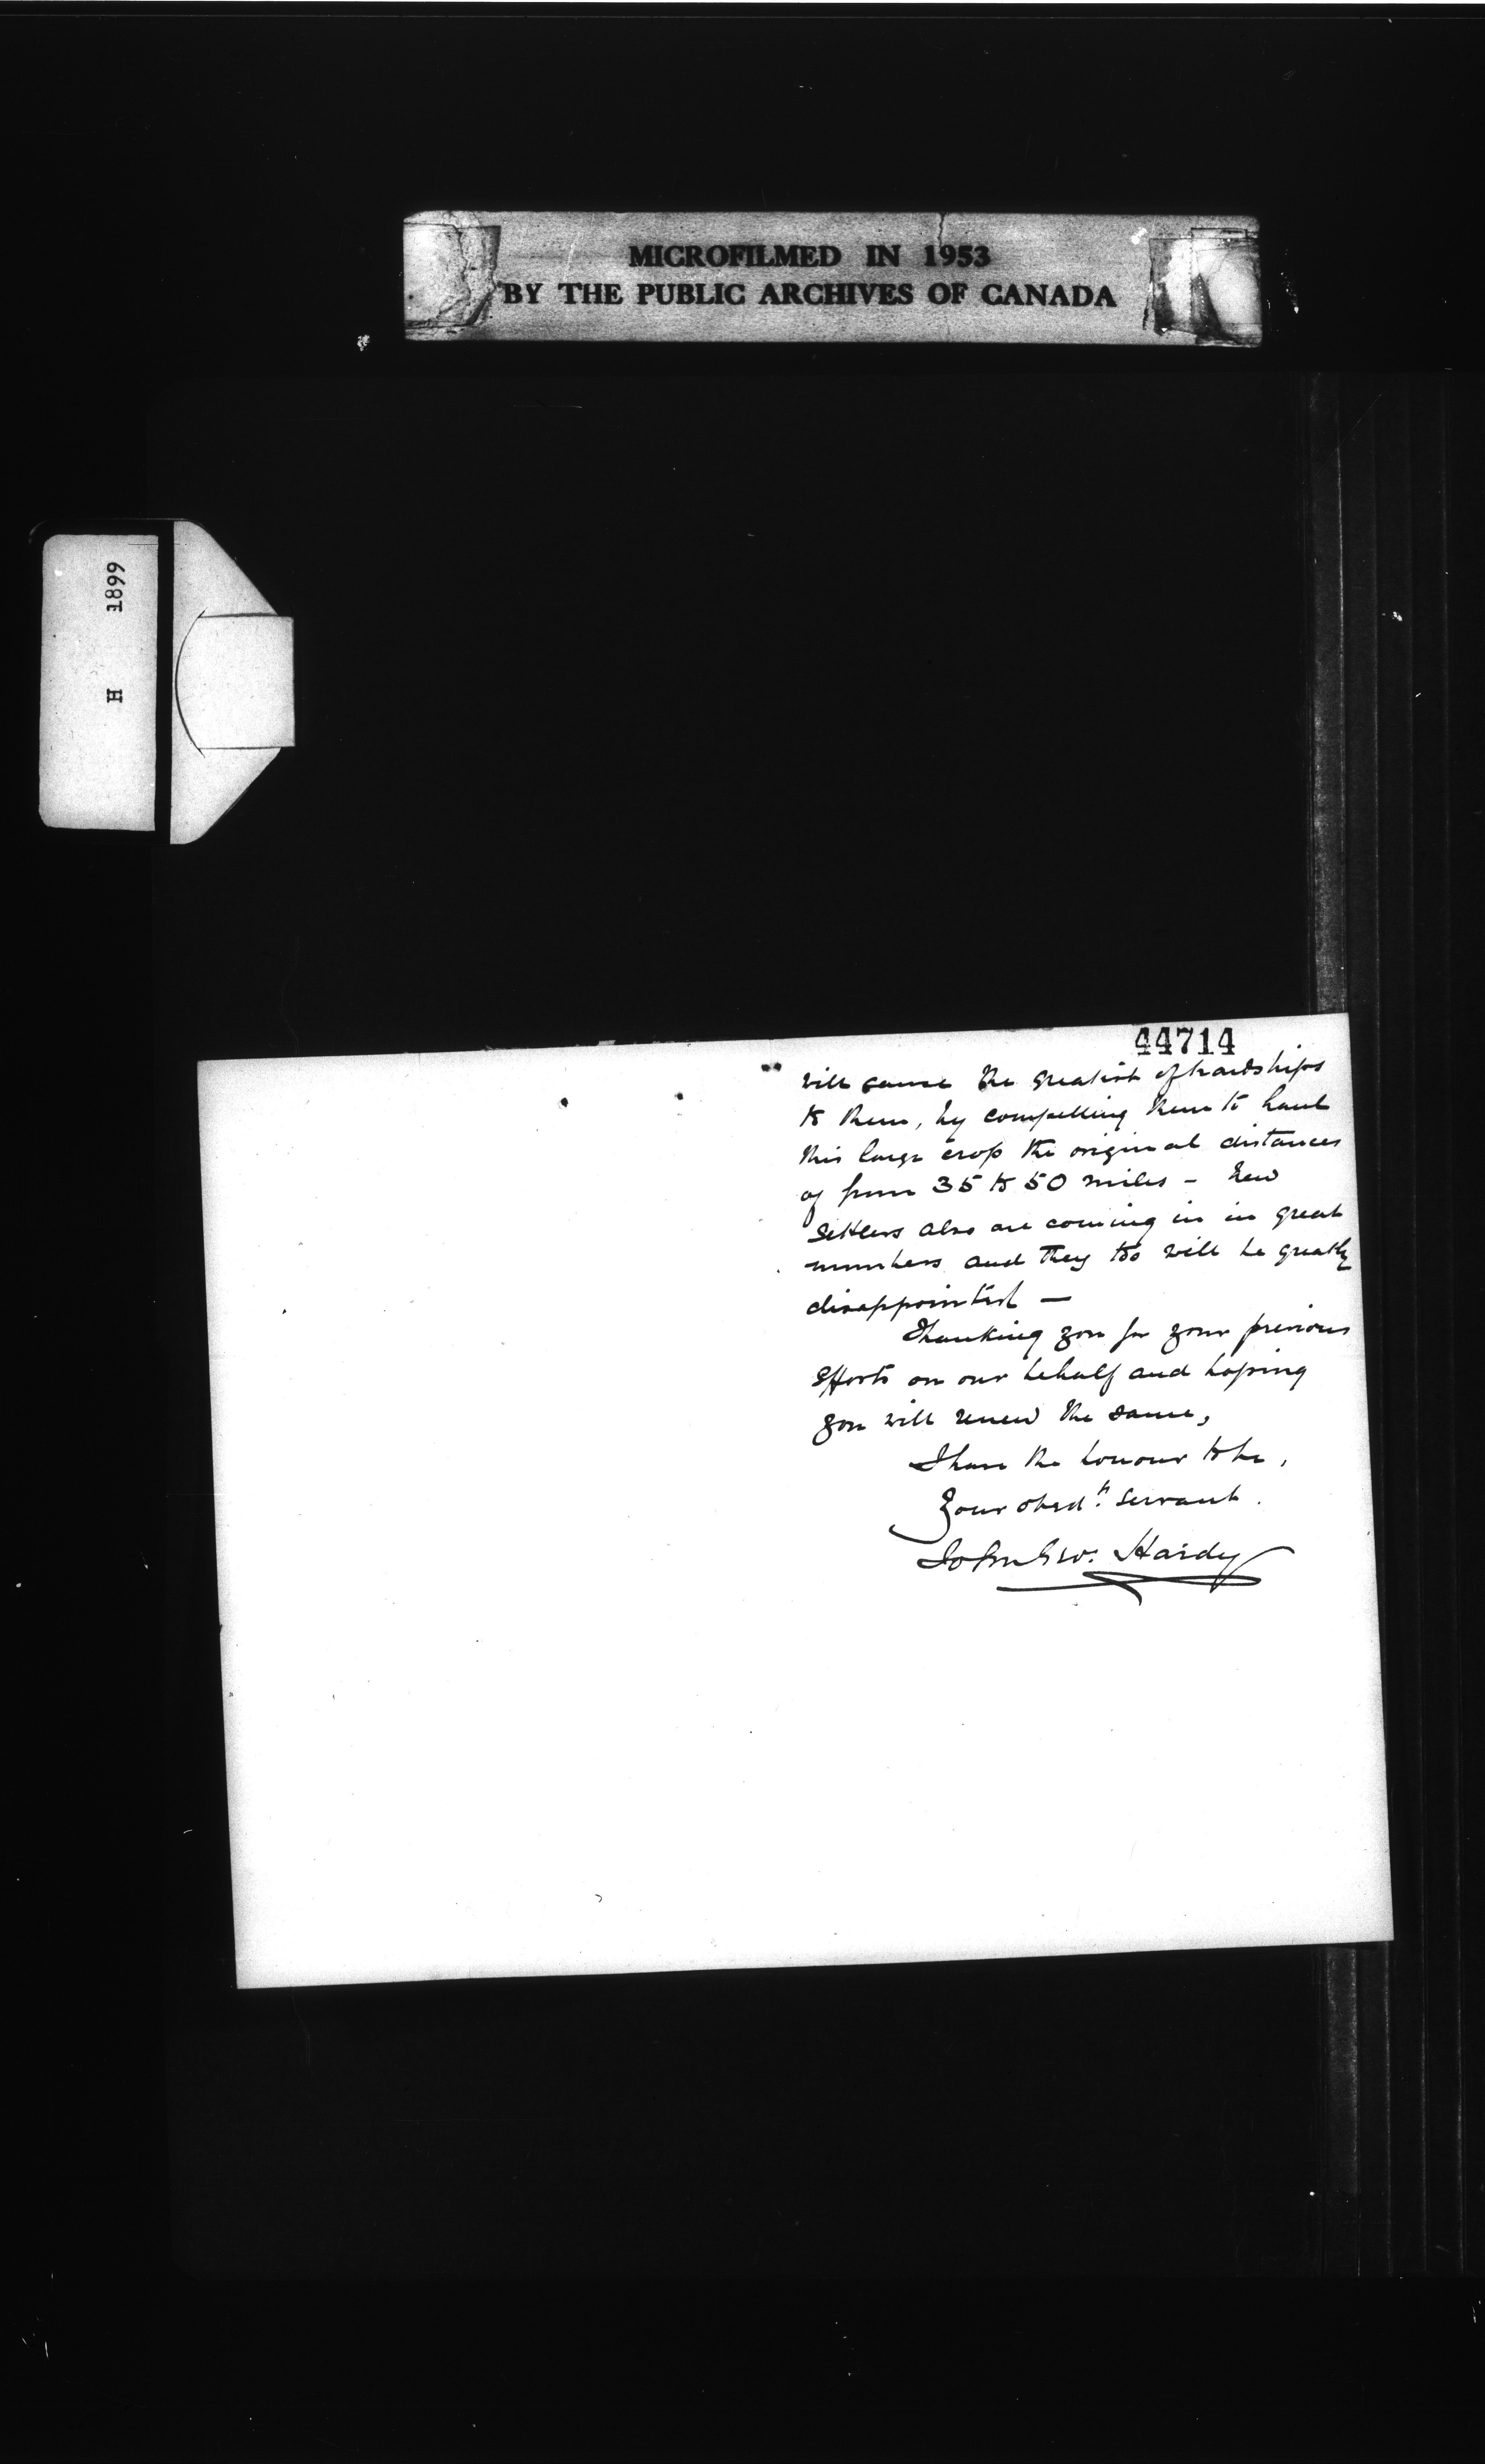 MICROFILMED IN 1953
BY THE PUBLIC ARCHIVES OF CANADA
H 1899
44714
will cause the greatest of hardships
to them, by compelling them to haul
this large crop the original distances
of from 35 to 50 miles - New
settlers also are coming in in great
numbers and they too will be greatly
disappointed —
Thanking you for your previous
efforts on our behalf and hoping
you will renew the same,
I have the honour to be,
Your obedt. servant.
John Geo. Hardy